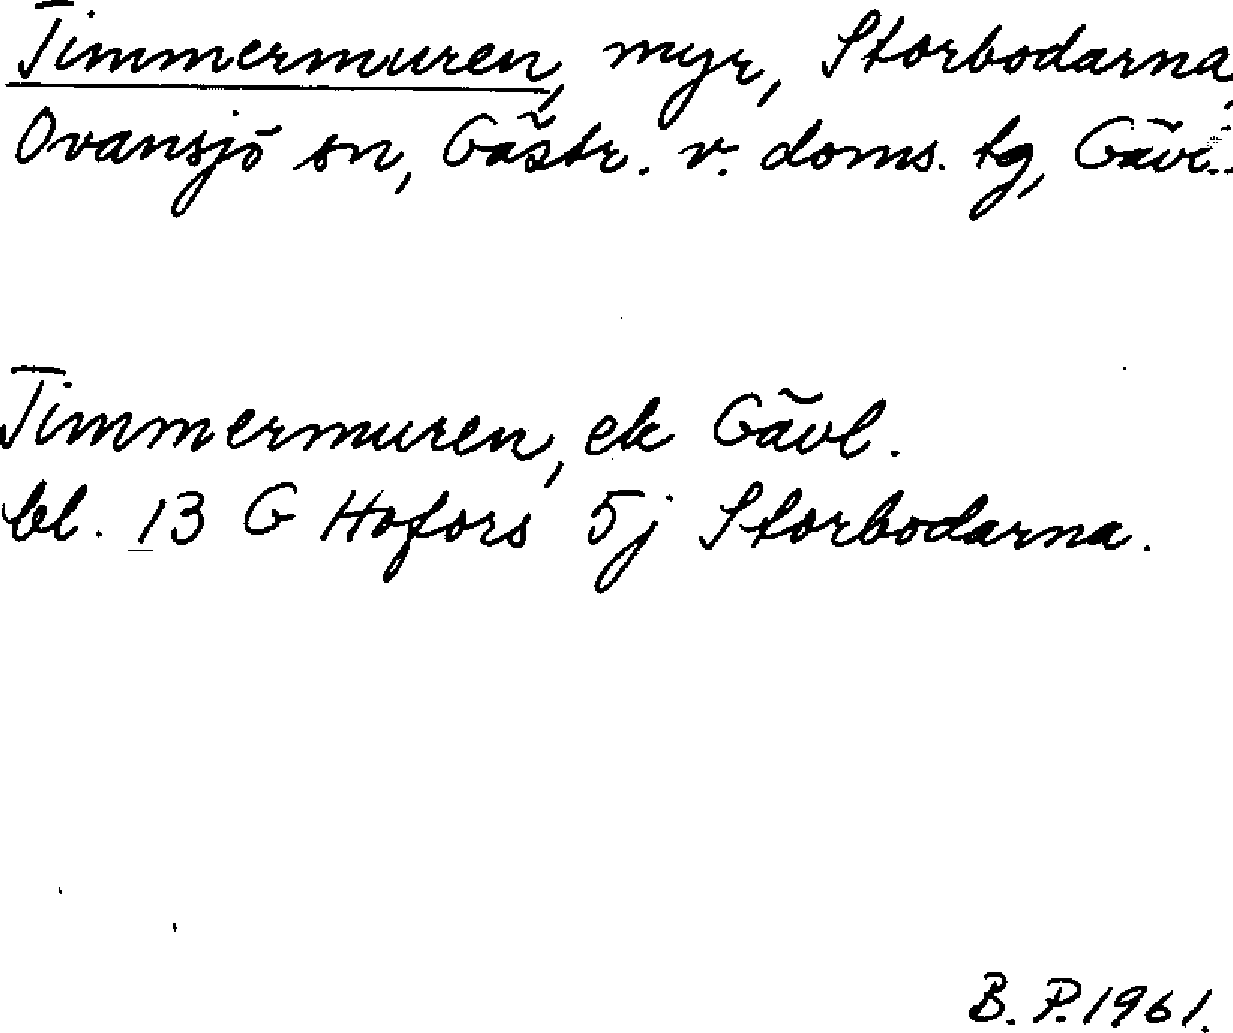 Timmermuren, myr, Storbodarna,
Ovansjö sn, Gästr. v. doms. tg, Gävl.
Timmermuren, ek Gävl.
bl. 13 G Hofors 5j Storbodarna.
B. P. 1961.